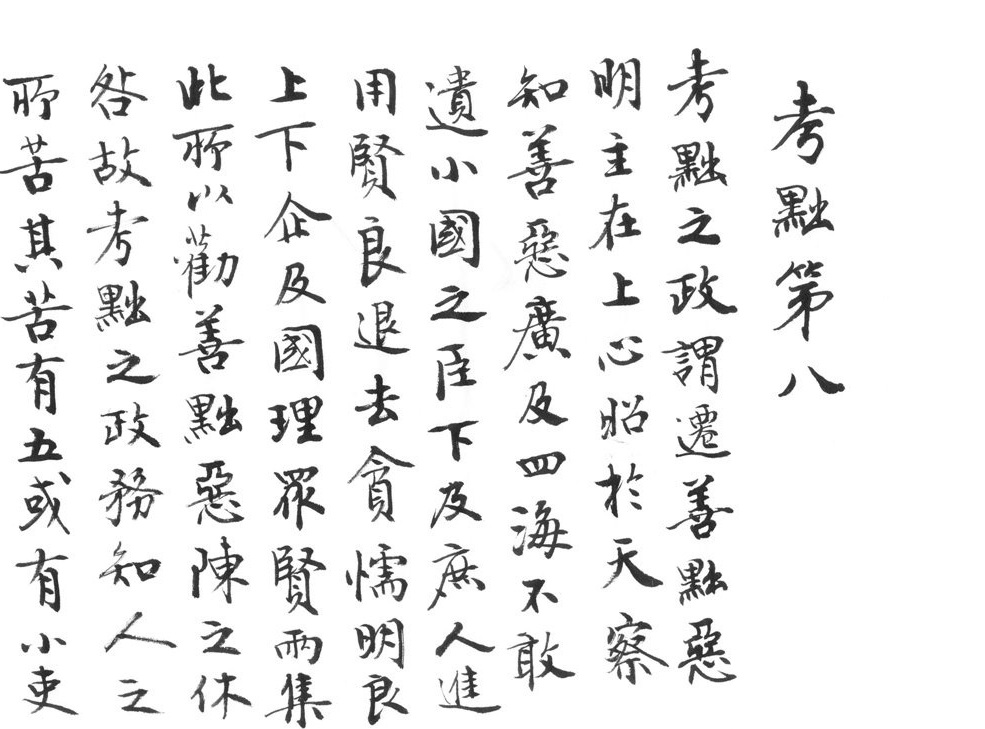 考黜第八
考黜之政謂遷善黜惡
明主在上心昭於天察
知善惡廣及四海不敢
遺小國之臣下及庶人進
用賢良退去貪懦明良
上下企及國理眾賢雨集
此所以勸善黜惡陳之休
咎故考黜之政務知人之
所苦其苦有五或有小吏